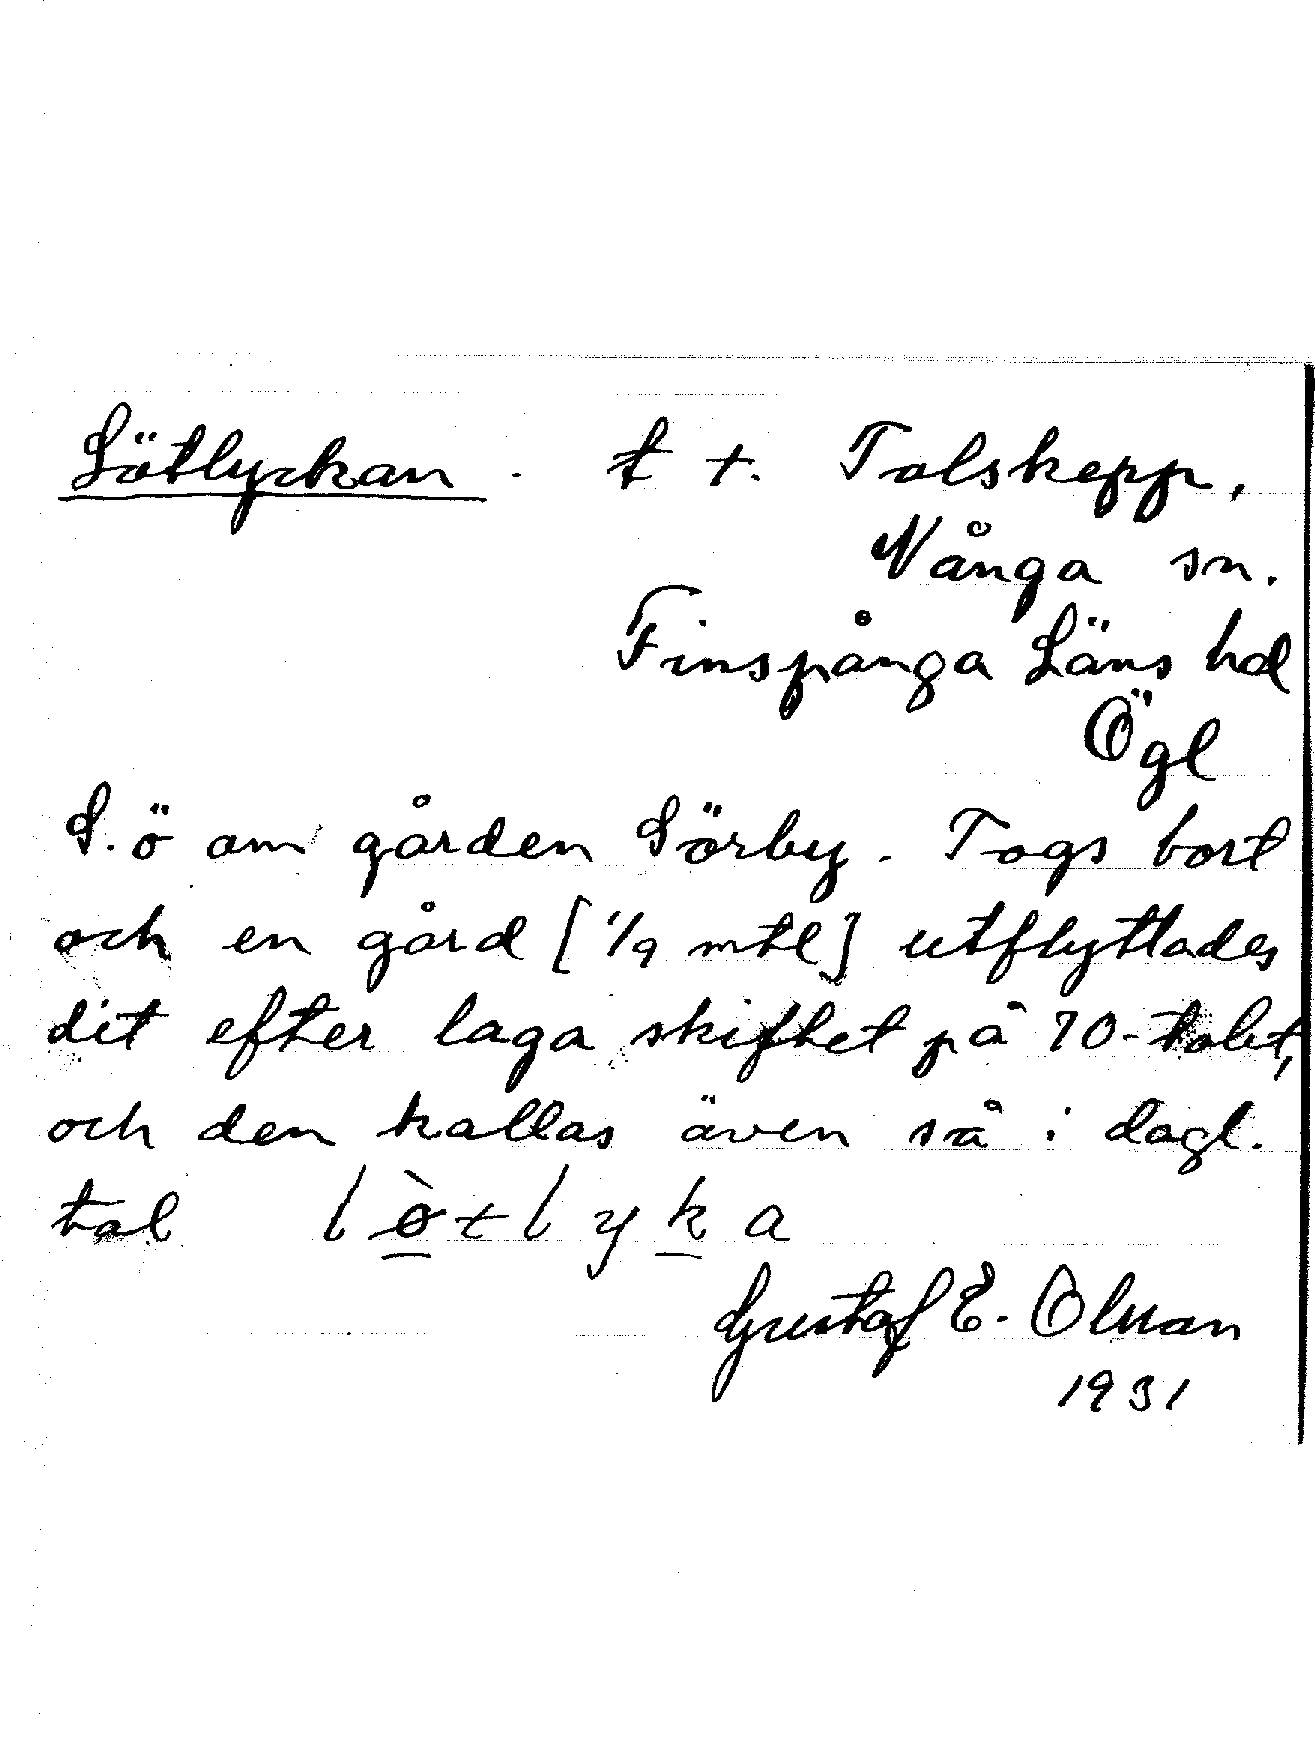 Lötlyckan. t t. Tolskepp,
Vånga sn.
Finspånga Läns hd
Ögl
S.ö om gården Sörby. Togs bort
och en gård [1/9 mtl] utflyttades
dit efter laga skiftet på 70-talet,
och den kallas även så i dagl.
tal lò̲tlyk̲a
Gustaf E. Olsson
1931